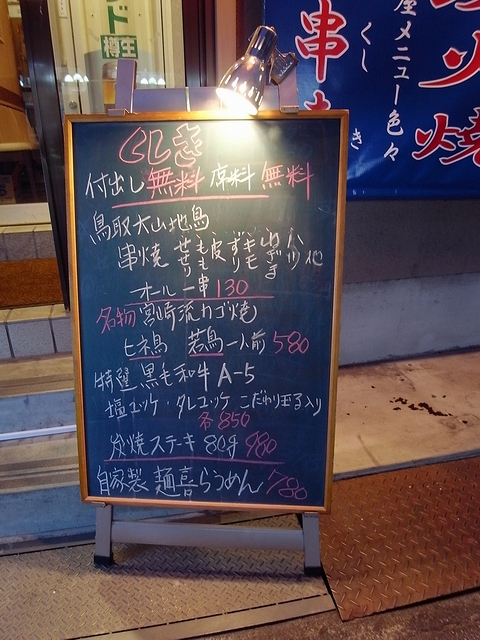 ド
樽生
串
くし
き
屋メニュー色々
火焼
くしき
付出し無料 席料 無料
鳥取大山地鳥
串焼 せせり もも 皮 ずり キモ ねぎま ハツ 他
オール一串130
名物 宮崎流カゴ焼
ヒネ鳥 若鳥 一人前 580
特選 黒毛和牛 A-5
塩ユッケ・タレユッケ こだわり玉子入り
各850
炭焼ステーキ 80g 980
自家製 麺喜らうめん 780